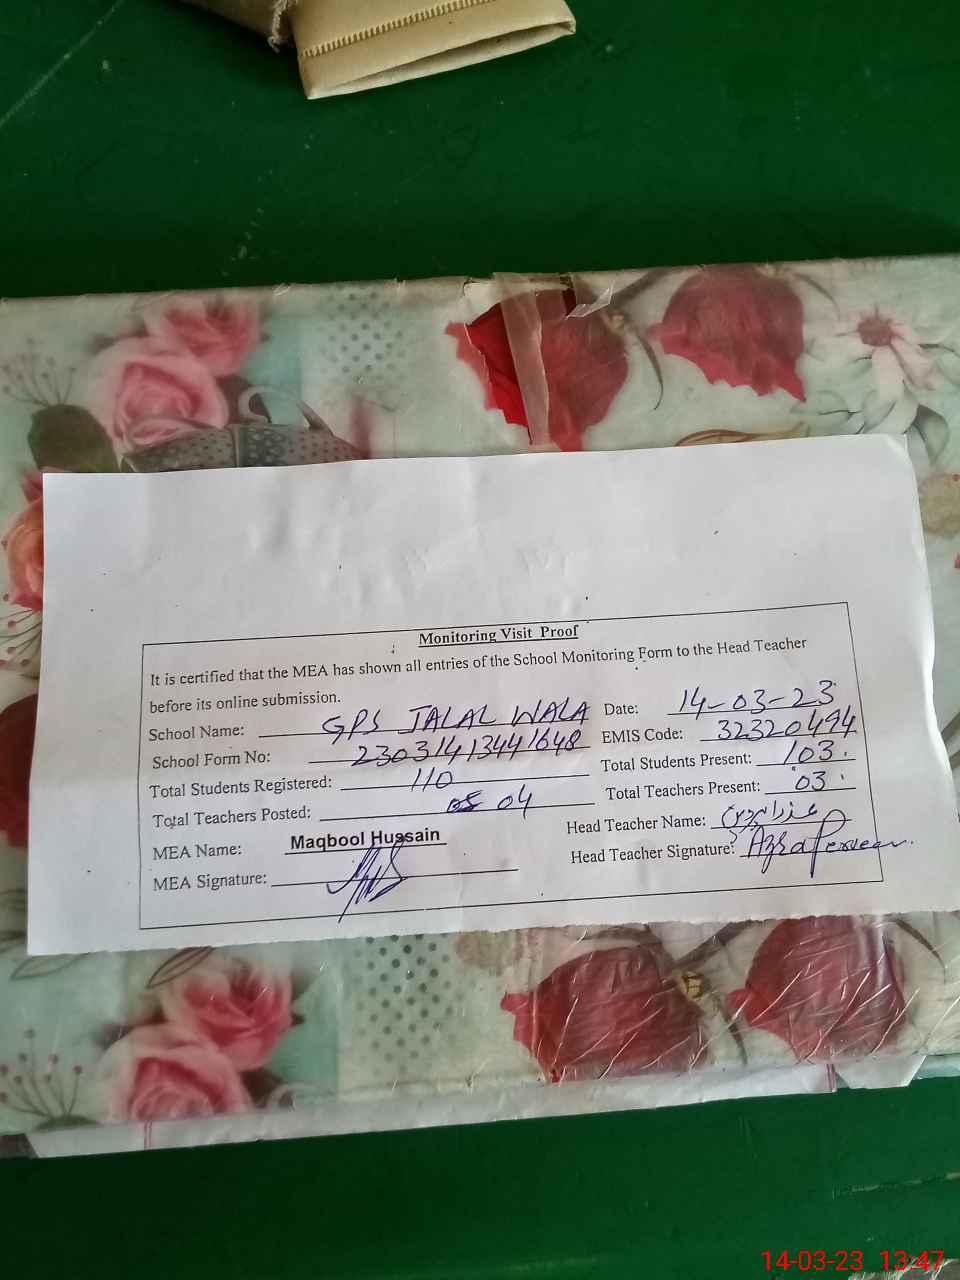 Monitoring Visit Proof
It is certified that the MEA has shown all entries of the School Monitoring Form to the Head Teacher
before its online submission.
School Name: GPS JALAL WALA Date: 14-03-23
School Form No: 23031413441648 EMIS Code: 32320494
Total Students Registered: 110 Total Students Present: 103.
Total Teachers Posted: 04 Total Teachers Present: 03
MEA Name: Maqbool Hussain Head Teacher Name: عذرا پروین
MEA Signature: Head Teacher Signature: Azra Perveen.
14-03-23 13:47